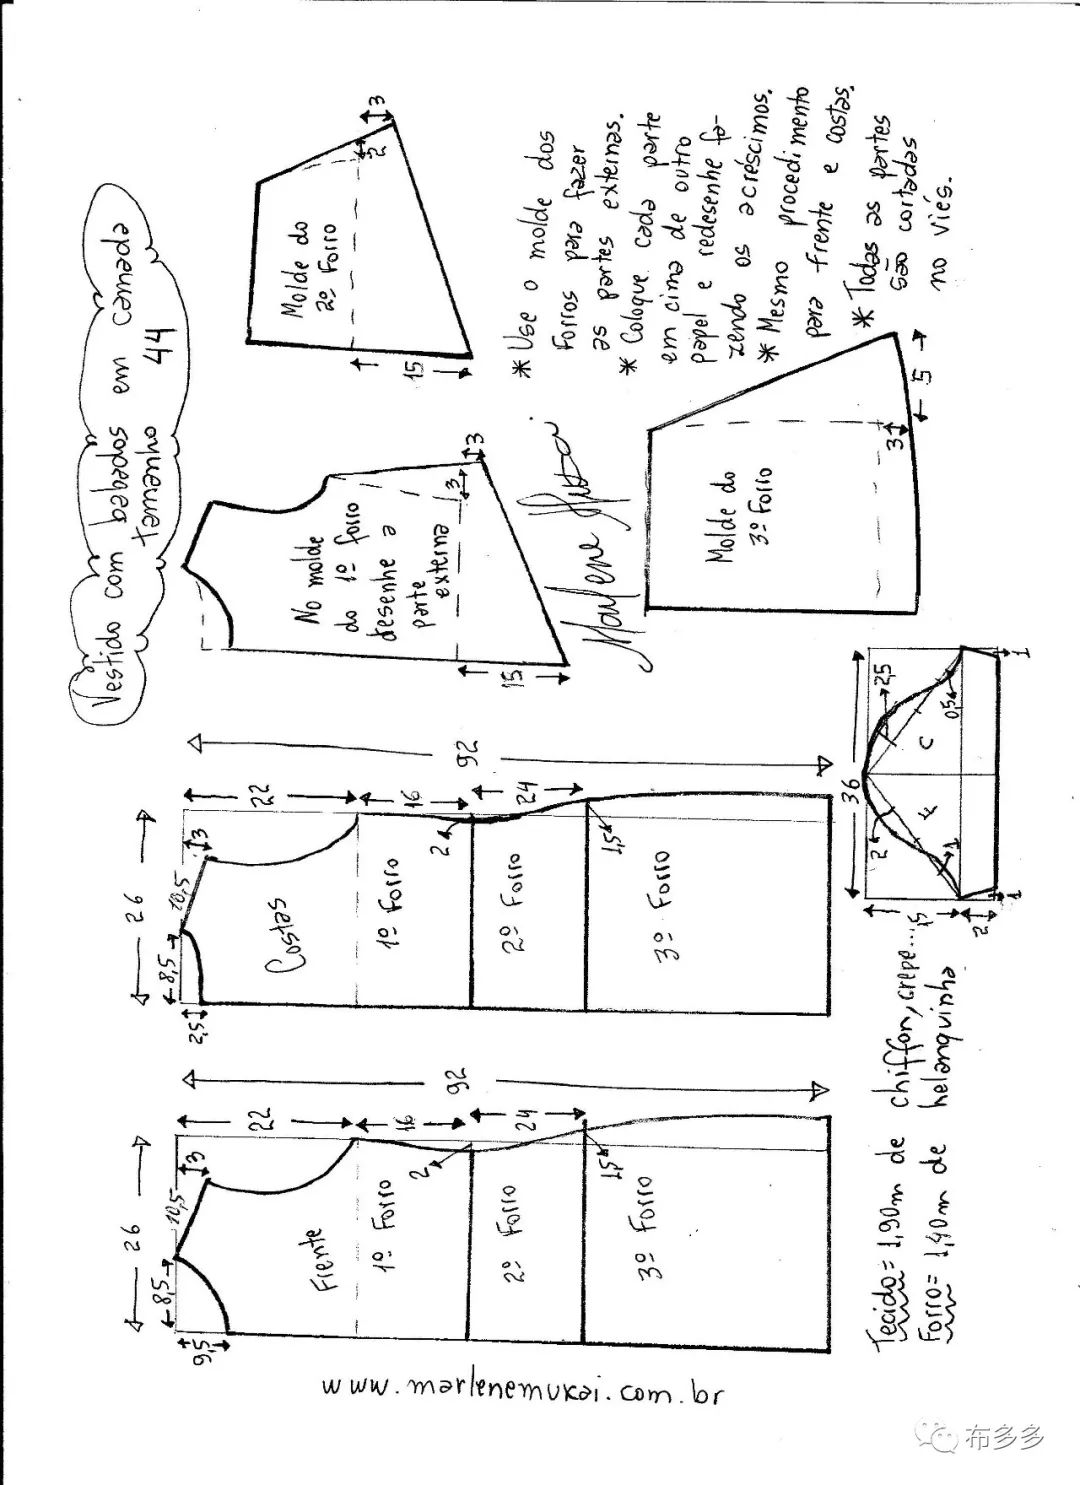 Vestido com babados em camada
tamanho 44
Frente
26
8,5
10,5
3
9,5
22
16
24
92
2
1,5
1º Forro
2º Forro
3º Forro
Costas
26
8,5
10,5
3
2,5
22
16
24
92
2
1,5
1º Forro
2º Forro
3º Forro
No molde
do 1º forro
desenhe a
parte
externa
15
3
3
Molde do
2º Forro
15
2
3
Marlene Mukai
* Use o molde dos
Forros para fazer
as partes externas.
* Coloque cada parte
em cima de outro
papel e redesenhe fa-
zendo os acréscimos.
* Mesmo procedimento
para frente e costas.
* Todas as partes
são cortadas
no viés.
Molde do
3º Forro
3
5
36
15
2
2
1
F
C
2,5
0,5
1
1
Tecido= 1,90m de chiffon, crepe...
Forro= 1,40m de helanquinha
www.marlenemukai.com.br
布多多